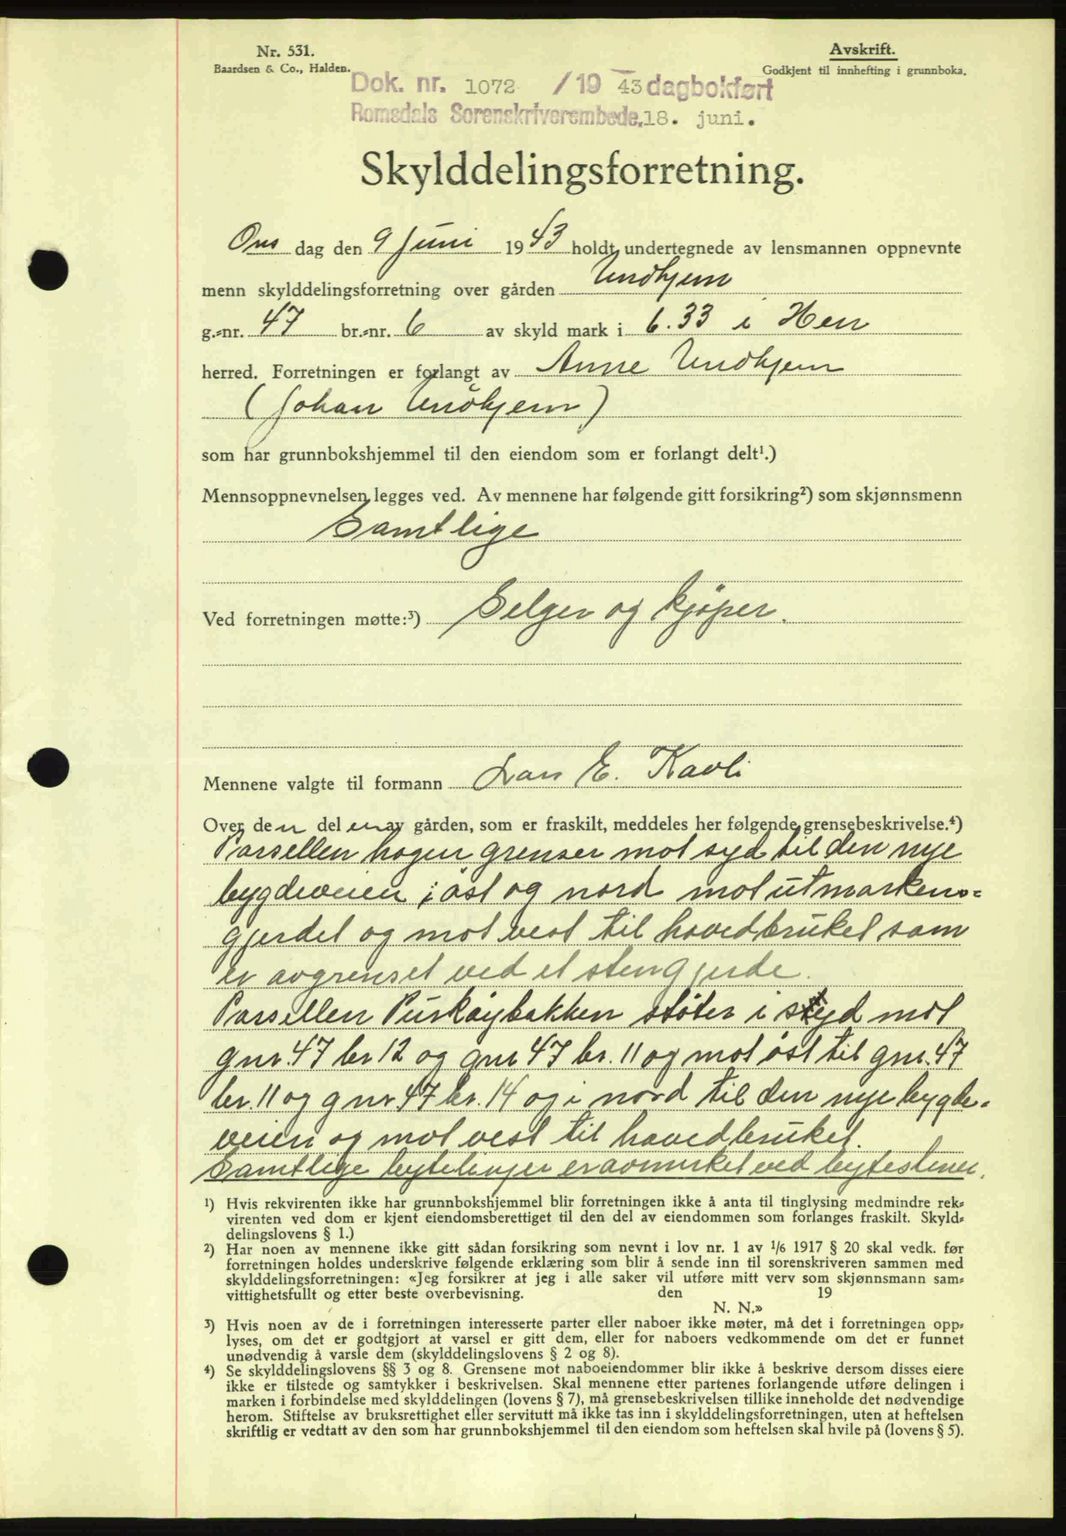 Nr. 531.
Baardsen & Co., Halden.
Avskrift.
Godkjent til innhefting i grunnboka.
Dok. nr. 1072 /1943 dagbokført
Romsdals Sorenskriverembede, 18. juni.
Skylddelingsforretning.
Ons dag den 9 Juni 1943 holdt undertegnede av lensmannen oppnevnte
menn skylddelingsforretning over gården Undhjem
g.-nr. 47 br.-nr. 6 av skyld mark i 6.33 i Hen
herred. Forretningen er forlangt av Anne Undhjem
(Johan Undhjem)
som har grunnbokshjemmel til den eiendom som er forlangt delt¹.)
Mennsoppnevnelsen legges ved. Av mennene har følgende gitt forsikring²) som skjønnsmenn
Samtlige
Ved forretningen møtte:³) Selger og kjøper.
Mennene valgte til formann Lars E. Kavli
Over den del en av gården, som er fraskilt, meddeles her følgende grensebeskrivelse.⁴)
Parsellen hagen grenser mot syd til den nye
bygdeveien, i øst og nord mot utmarkens=
gjerdet og mot vest til hovedbruket som
er avgrenset ved et stengjerde.
Parsellen støter i syd mot
gnr. 47 br 12 og gnr 47 br. 11 og mot øst til gnr. 47
br. 11 og gnr 47 br. 14 og i nord til den nye bygde=
veien og mot vest til hovedbruket.
Samtlige bytelinjer er avmerket ved bytestener.
¹) Hvis rekvirenten ikke har grunnbokshjemmel blir forretningen ikke å anta til tinglysing medmindre rek-
virenten ved dom er kjent eiendomsberettiget til den del av eiendommen som forlanges fraskilt. Skyld-
delingslovens § 1.)
²) Har noen av mennene ikke gitt sådan forsikring som nevnt i lov nr. 1 av 1/6 1917 § 20 skal vedk. før
forretningen holdes underskrive følgende erklæring som blir å sende inn til sorenskriveren sammen med
skylddelingsforretningen: «Jeg forsikrer at jeg i alle saker vil utføre mitt verv som skjønnsmann sam-
vittighetsfullt og etter beste overbevisning. den 19
N. N.»
³) Hvis noen av de i forretningen interesserte parter eller naboer ikke møter, må det i forretningen opp-
lyses, om det er godtgjort at varsel er gitt dem, eller for naboers vedkommende om det er funnet
unødvendig å varsle dem (skylddelingslovens § 2 og 8).
⁴) Se skylddelingslovens §§ 3 og 8. Grensene mot naboeiendommer blir ikke å beskrive dersom disses eiere
ikke er tilstede og samtykker i beskrivelsen. Skal mennene etter partenes forlangende utføre delingen i
marken i forbindelse med skylddelingen (lovens § 7), må grensebeskrivelsen tillike inneholde det nødvendige
herom. Stiftelse av bruksrettighet eller servitutt må ikke tas inn i skylddelingsforretningen, uten at heftelsen
skriftlig er vedtatt av den som har grunnbokshjemmel til den eiendom som heftelsen skal hvile på (lovens § 5).